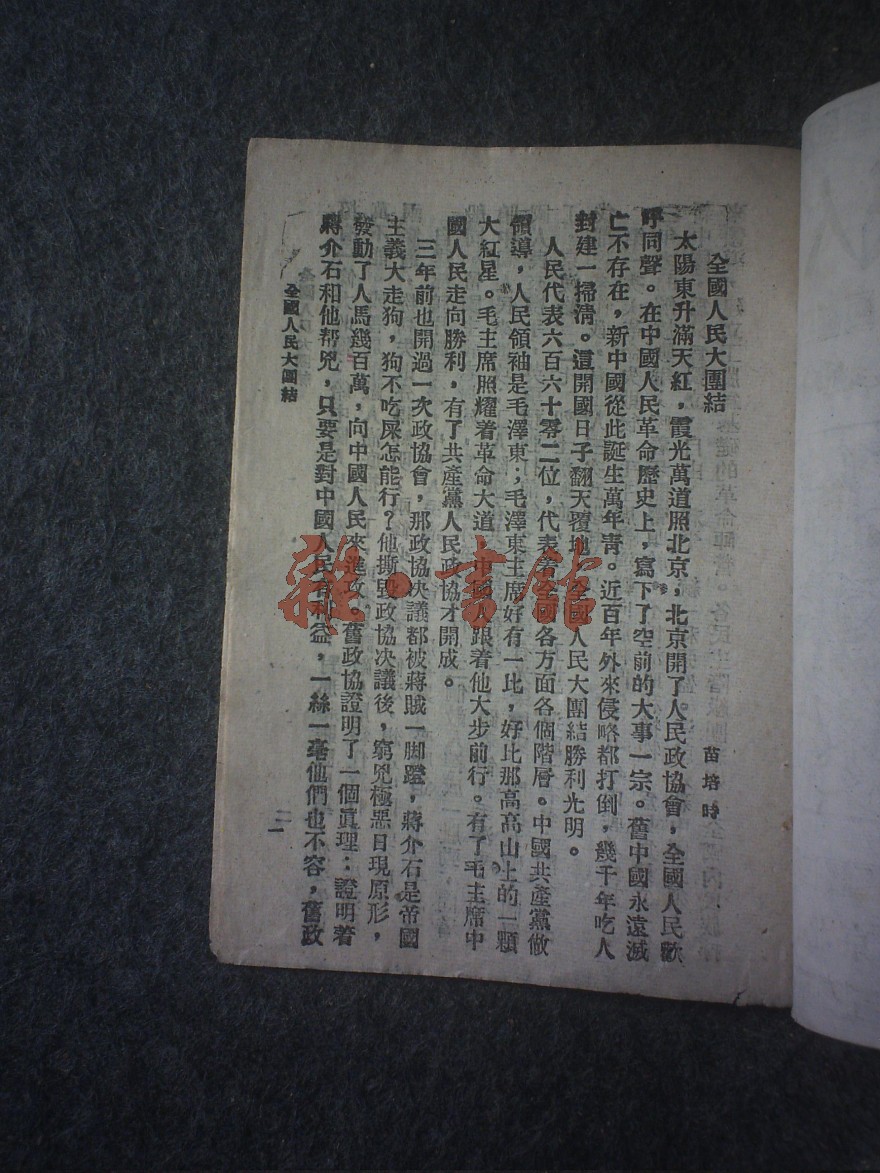 全國人民大團結
苗培時
太陽東升滿天紅，霞光萬道照北京；北京開了人民政協會，全國人民歡
呼同聲。在中國人民革命歷史上，寫下了空前的大事一宗。舊中國永遠滅
亡不存在，新中國從此誕生萬年青。近百年外來侵略都打倒，幾千年吃人
封建一掃清。這開國日子翻天覆地，全國人民大團結勝利光明。
人民代表六百六十零二位，代表着全國各方面各個階層。中國共產黨做
領導，人民領袖是毛澤東；毛澤東主席好有一比，好比那高高山上的一顆
大紅星。毛主席照耀着革命大道，中國人跟着他大步前行。有了毛主席中
國人民走向勝利，有了共產黨人民政協才開成。
三年前也開過一次政協會，那政協決議都被蔣賊一脚蹬，蔣介石是帝國
主義大走狗，狗不吃屎怎能行？他撕毀政協決議後，窮兇極惡日現原形，
發動了人馬幾百萬，向中國人民來進攻。舊政協證明了一個眞理：證明着
蔣介石和他帮兇，只要是對中國人民有利益，一絲一毫他們也不容，舊政
全國人民大團結
二一
雜·書館